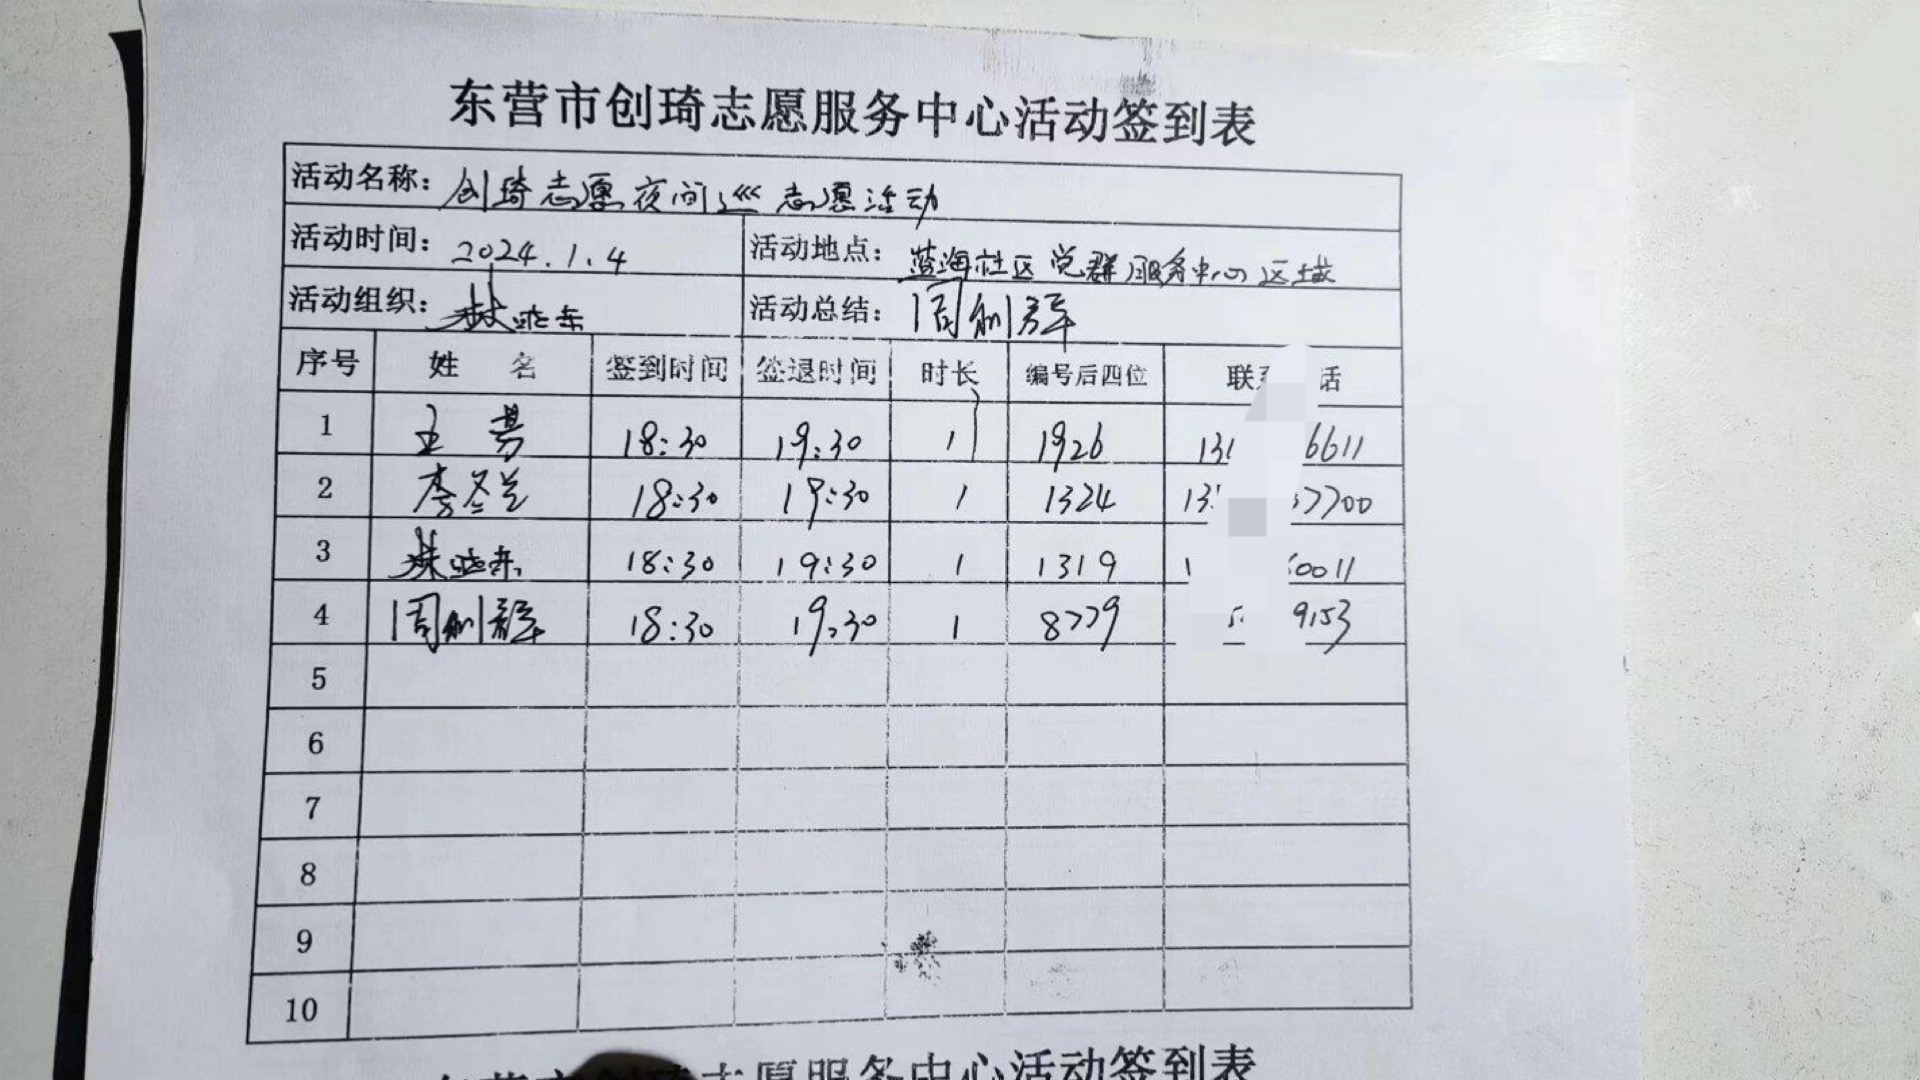 东营市创琦志愿服务中心活动签到表
活动名称：创琦志愿夜间巡志愿活动
活动时间：2024.1.4 活动地点：蓝海社区党群服务中心区域
活动组织： 活动总结：周创群
序号 姓名 签到时间 签退时间 时长 编号后四位 联 话
1 王 18:30 19:30 1 1926 131 6611
2 李冬兰 18:30 19:30 1 1324 13 7700
3 18:30 19:30 1 1319 1 0011
4 周创群 18:30 19:30 1 8779 9153
5
6
7
8
9
10
东营市创琦志愿服务中心活动签到表